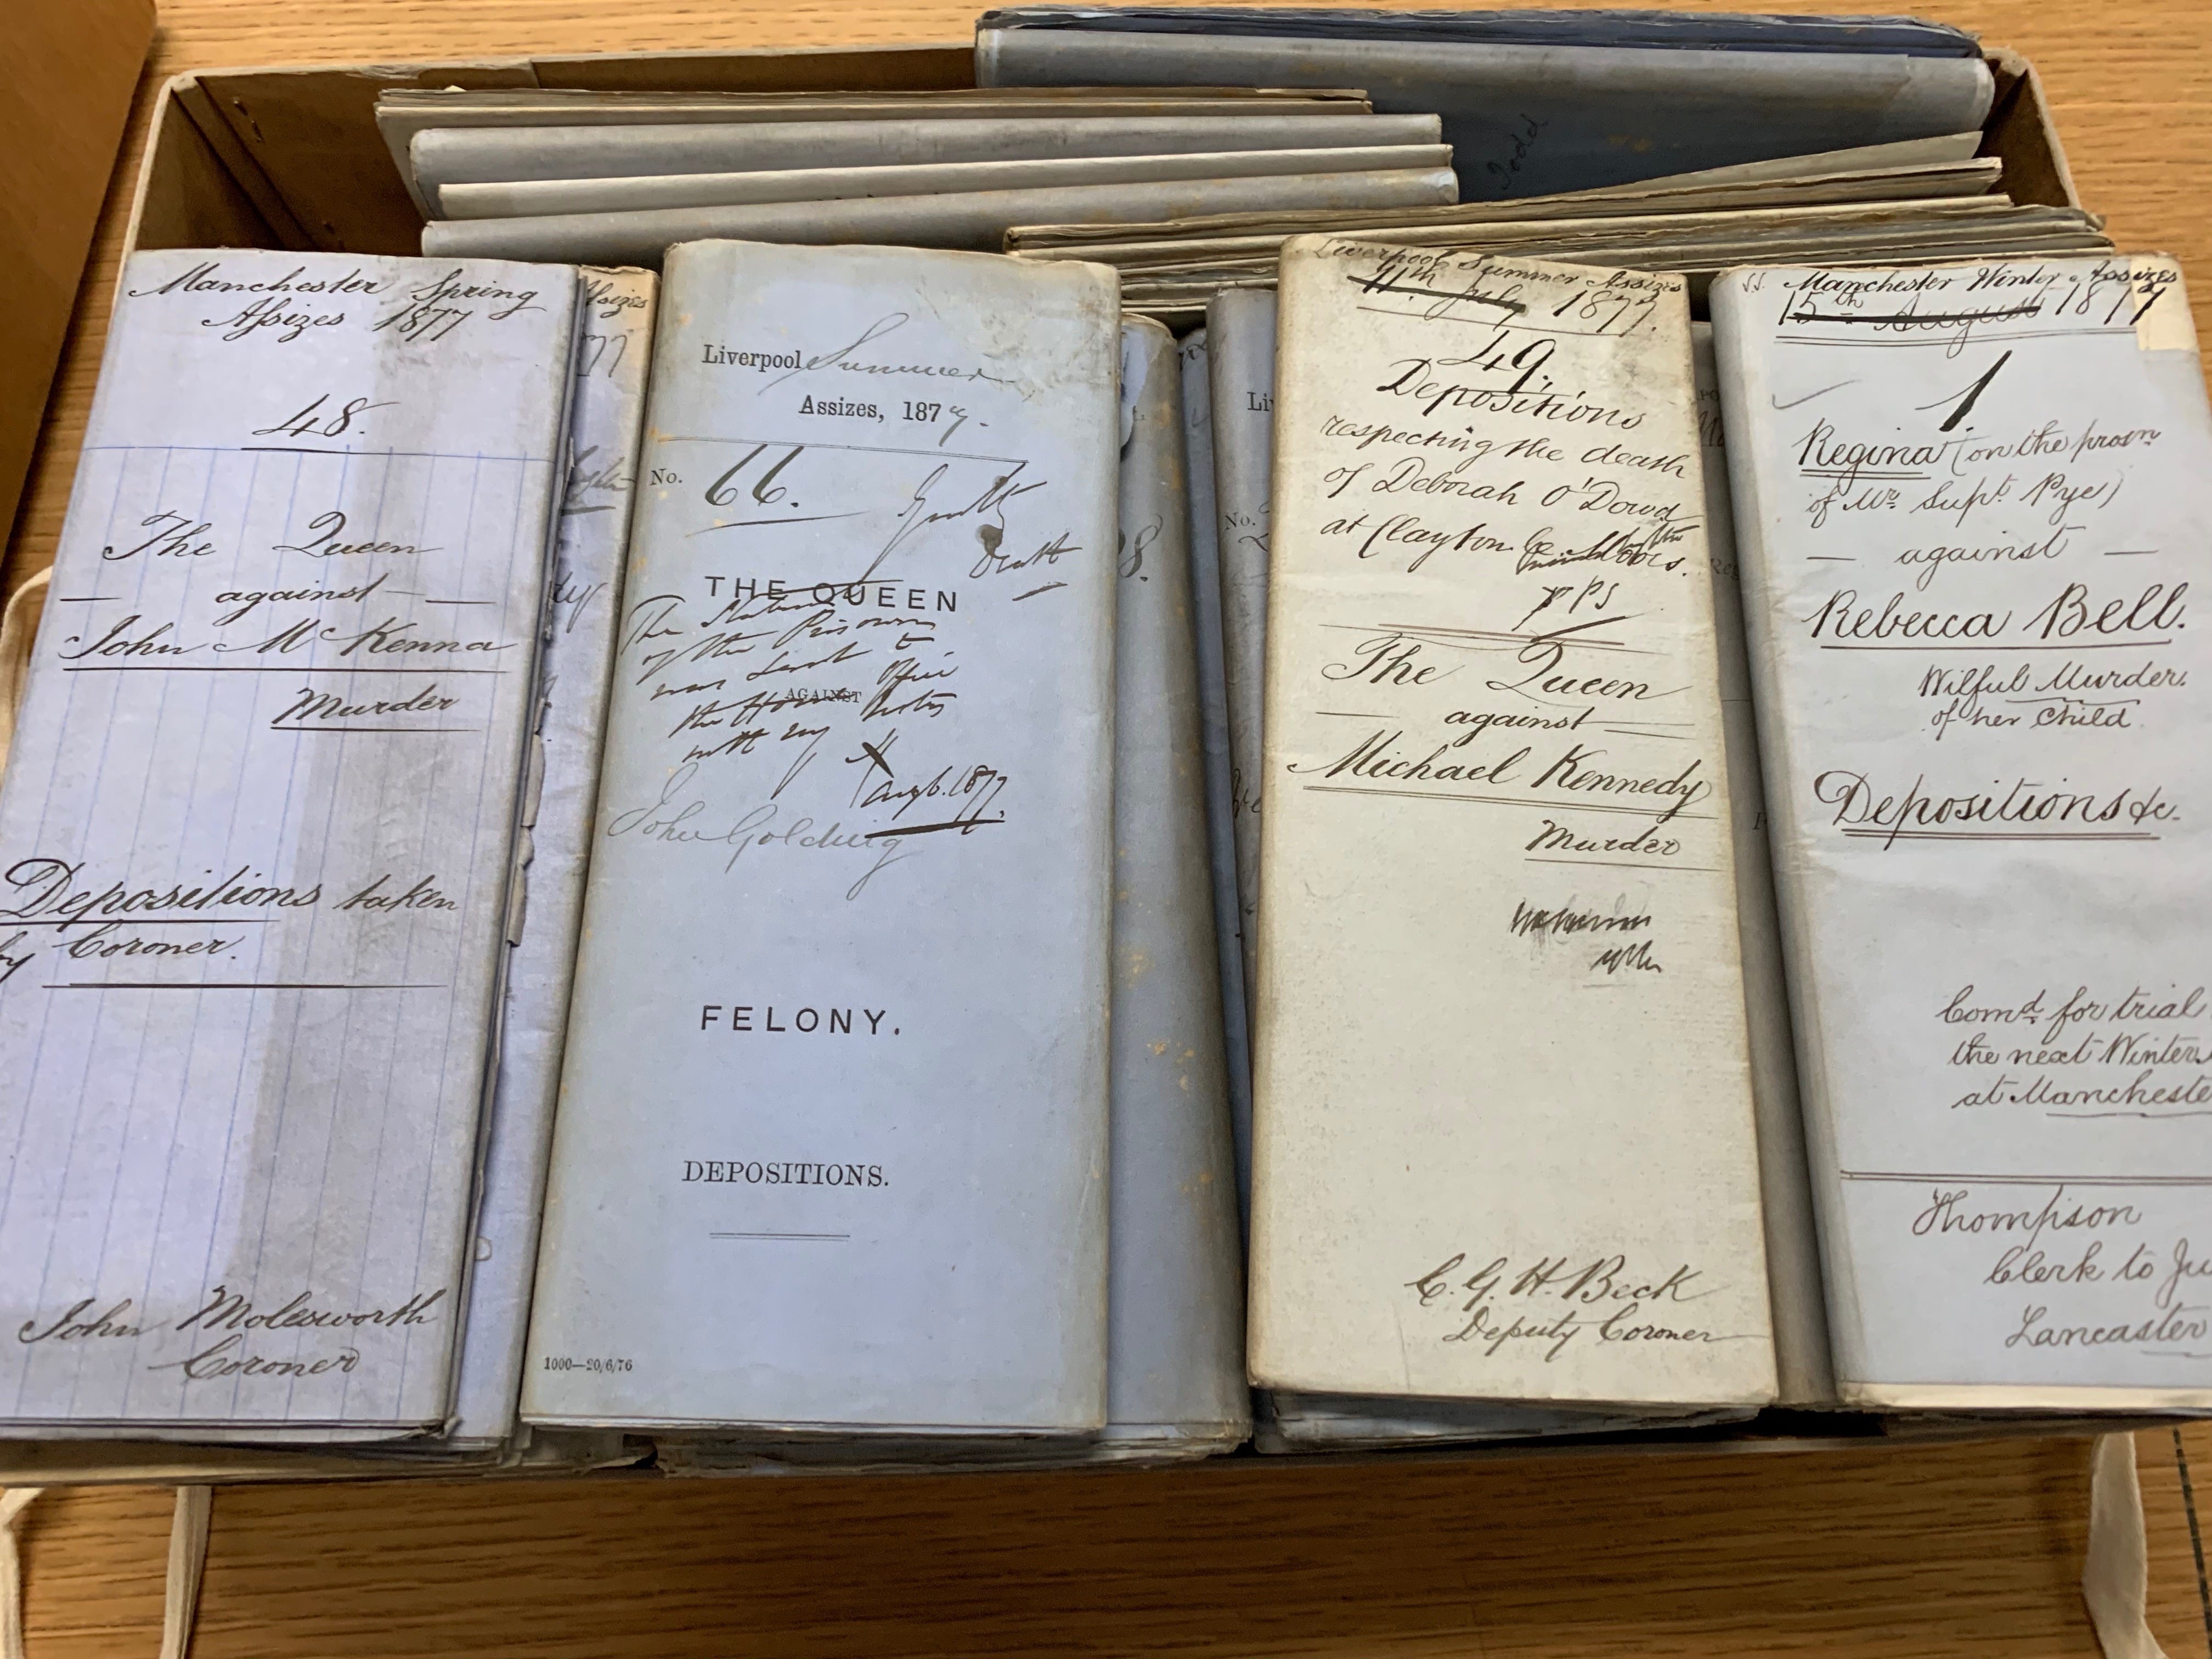 Todd
Manchester Spring
Assizes 1877
48.
The Queen
against
John McKenna
Murder
Depositions taken
by Coroner.
John Molesworth
Coroner
Assizes
77
Liverpool Summer
Assizes, 1877.
No. 66.
Guilty
Death
THE QUEEN
The
of the Prisoner
was sent to
AGAINST
the Home Office
with my notes
Aug 6. 1877.
John Golding
FELONY.
DEPOSITIONS.
1000—20/6/76
8.
Li
No.
Liverpool Summer Assizes
11th July 1877.
49.
Depositions
respecting the death
of Deborah O'Dowd
at Clayton le Moors.
The Queen
against
Michael Kennedy
Murder
C. G. H. Beck
Deputy Coroner
Manchester Winter Assizes
15th August 1877
1.
Regina (on the prosn
of Mr Supt Pye)
against
Rebecca Bell.
Wilful Murder.
of her Child
Depositions &c.
Comd for trial
the next Winter
at Manchester
Thompson
Clerk to Ju
Lancaster